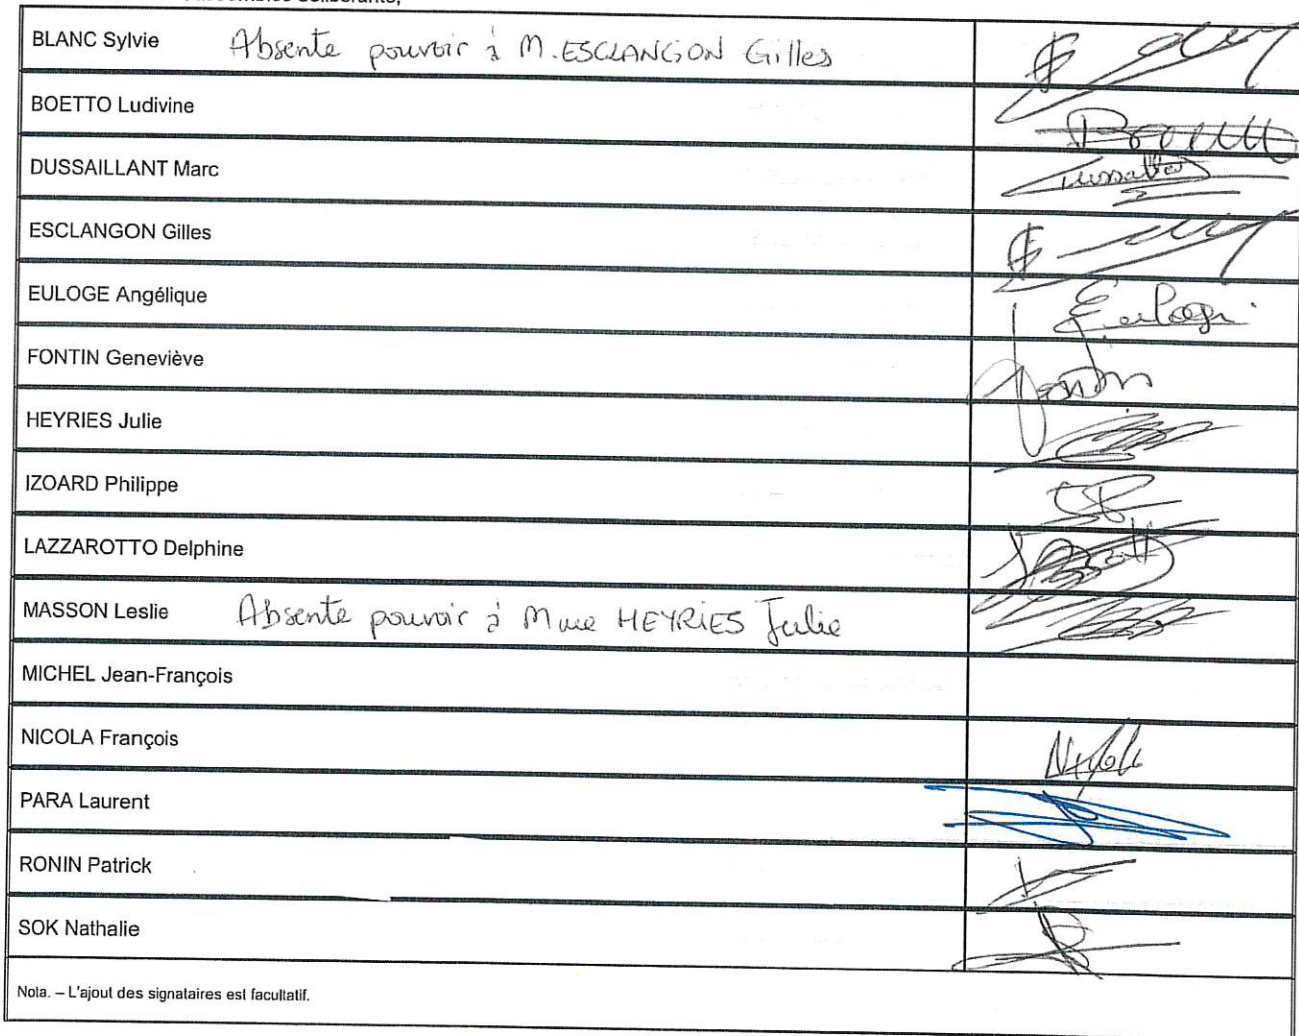 BLANC Sylvie Absente pouvoir à M. ESCLANGON Gilles
BOETTO Ludivine
DUSSAILLANT Marc
ESCLANGON Gilles
EULOGE Angélique
FONTIN Geneviève
HEYRIES Julie
IZOARD Philippe
LAZZAROTTO Delphine
MASSON Leslie Absente pouvoir à Mme HEYRIES Julie
MICHEL Jean-François
NICOLA François
PARA Laurent
RONIN Patrick
SOK Nathalie
Nota. – L'ajout des signataires est facultatif.